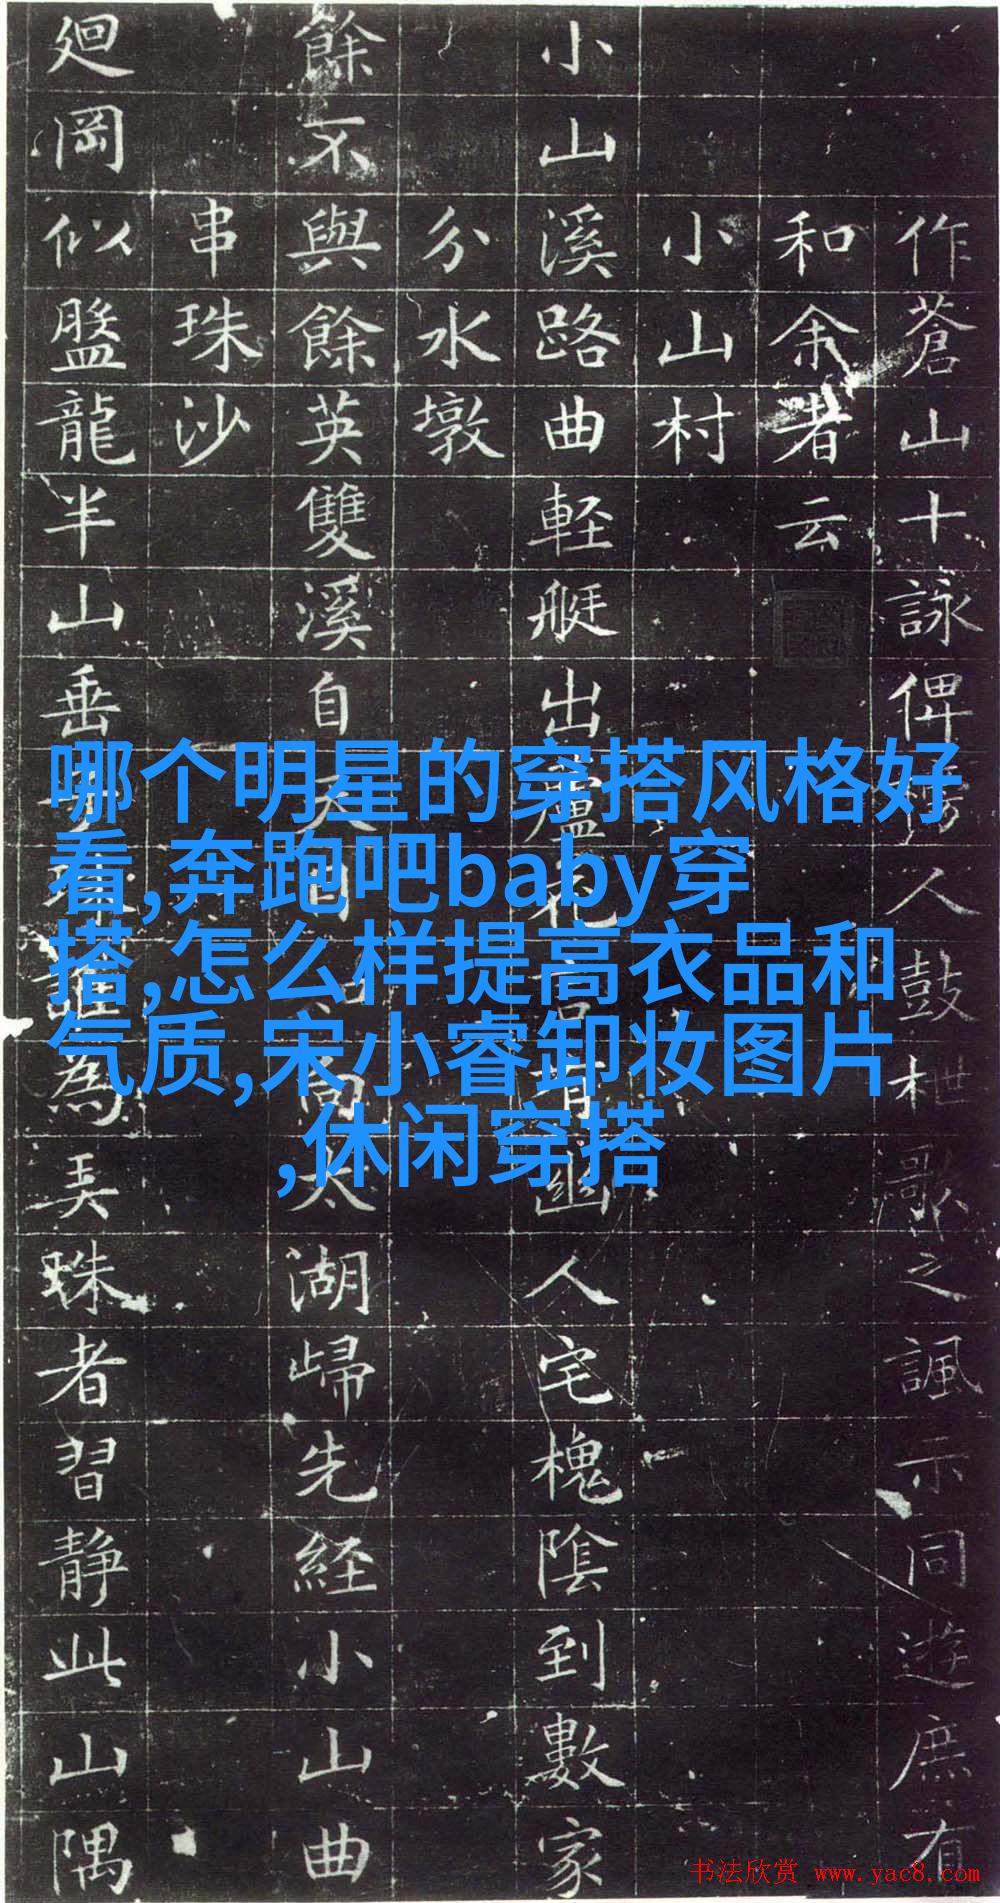 作蒼山十詠俾人鼓枻歌之諷示同遊庶有
和余者云
小山村
小山溪路曲軽艇出蘆花有幽人宅槐陰到數家
分水墩
餘不與餘英雙溪自天目太湖歸先経小山曲
串珠沙
廻岡似盤龍半山垂珠誰為弄珠者習静此山隅
哪个明星的穿搭风格好
看,奔跑吧baby穿
搭,怎么样提高衣品和
气质,宋小睿卸妆图片
,休闲穿搭
书法欣赏 www.yac8.com